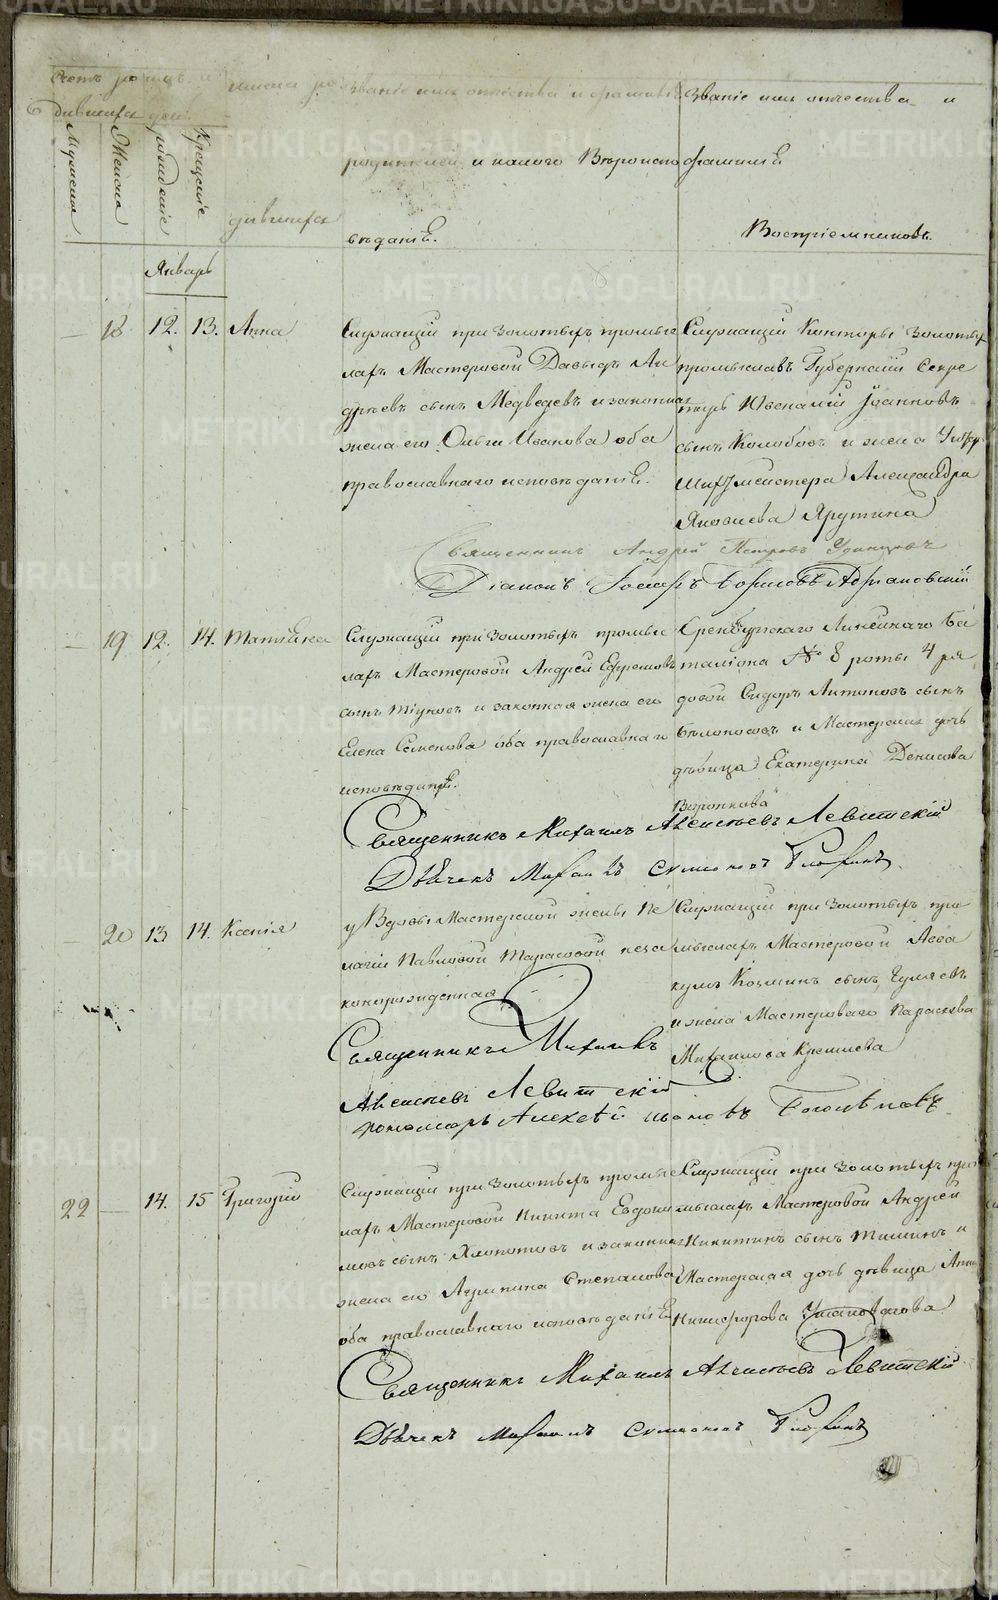 Счетъ родив
дившихся
имена ро
Званіе имя отчество и фамилія
Званіе имя отчества и
Мужеска
Женска
рожденіе
Крещеніе
родителей, и какого Вѣроиспо
фамилія
дившихся
вѣданія.
Воспріемниковъ.
Январь
18 12. 13. Анна
Служащій при Золотыхъ промыс
лахъ Мастеровой Давыдъ Ан
дреевъ сынъ Медведевъ и законная
жена его Ольга Иванова оба
православнаго исповѣданія.
Служащій Конторы Золотых
промысловъ Губернскій Секре
тарь Ювеналій Іоанновъ
сынъ Колобовъ и жена Унтер
Шихтмейстера Александра
Яковлева Ярутина
Священникъ Андрей Петровъ Удинцовъ
Діаконъ Іосифъ Борисовъ Адріановскій
19 12. 14. Татіана
Служащій при Золотыхъ промыс
лахъ Мастеровой Андрей Ефремовъ
сынъ Тіуновъ и законная жена его
Елена Семенова оба православнаго
исповѣданія.
Оренбургскаго Линейнаго Ба
таліона № 8 роты 4 ря
довой Сидоръ Антоновъ сынъ
Бѣлоносовъ и Мастерская дочь
дѣвица Екатерина Денисова
Воронкова
Священникъ Михаилъ Алексѣевъ Левитскій
Дьячекъ Михаилъ Симеоновъ
20 13 14. Ксенія
у Вдовы Мастерской жены Пе
лагіи Павловой Тарасовой неза
коннорожденная
Служащій при Золотыхъ про
мыслахъ Мастеровой Авва
кумъ Козминъ сынъ Гуляевъ
и жена Мастероваго Параскева
Михаилова Крешнева
Священникъ Михаилъ
Алексѣевъ Левитскій
пономарь Алексѣй Ивановъ
22 14. 15 Григорій
Служащій при Золотыхъ промыс
лахъ Мастеровой Никита Евдоки
мовъ сынъ Хлопотовъ и законная
жена его Агрипина Степанова
оба православнаго исповѣданія
Служащій при Золотыхъ про
мыслахъ Мастеровой Андрей
Никитинъ сынъ Тишинъ и
Мастерская дочь дѣвица Анна
Никифорова
Священникъ Михаилъ Алексѣевъ Левитскій
Дьячекъ Михаилъ Симеоновъ
METRIKI.GASO-URAL.RU